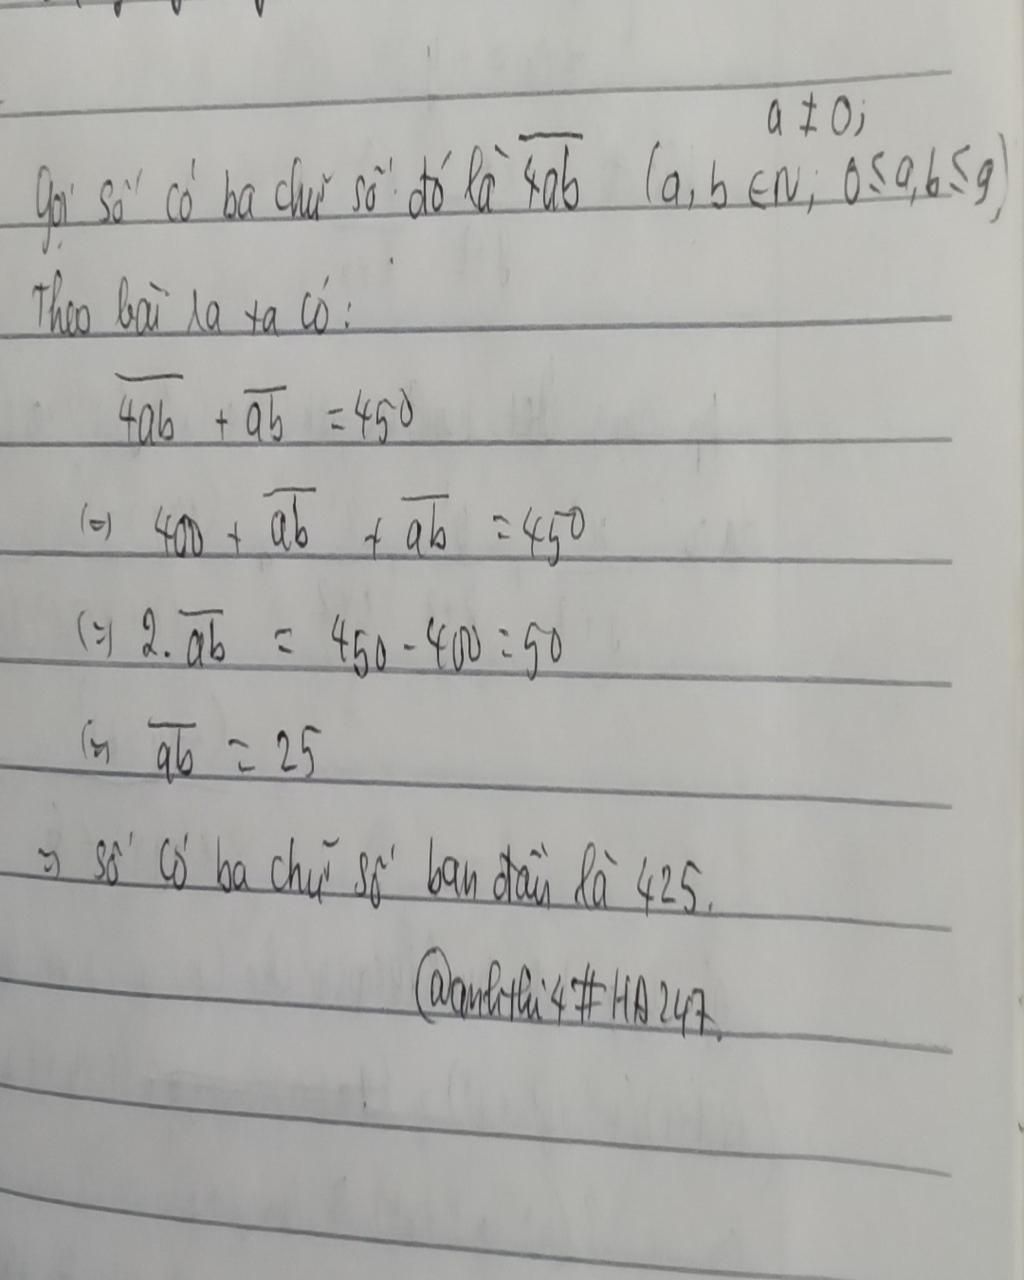 a ≠ 0;
Gọi số có ba chữ số đó là 4ab (a, b ∈ N; 0 ≤ a,b ≤ 9)
Theo bài ra ta có:
4ab + ab = 450
(=) 400 + ab + ab = 450
(=) 2. ab = 450 - 400 = 50
(=) ab = 25
=> số có ba chữ số ban đầu là 425.
@anhthi4#HA247.